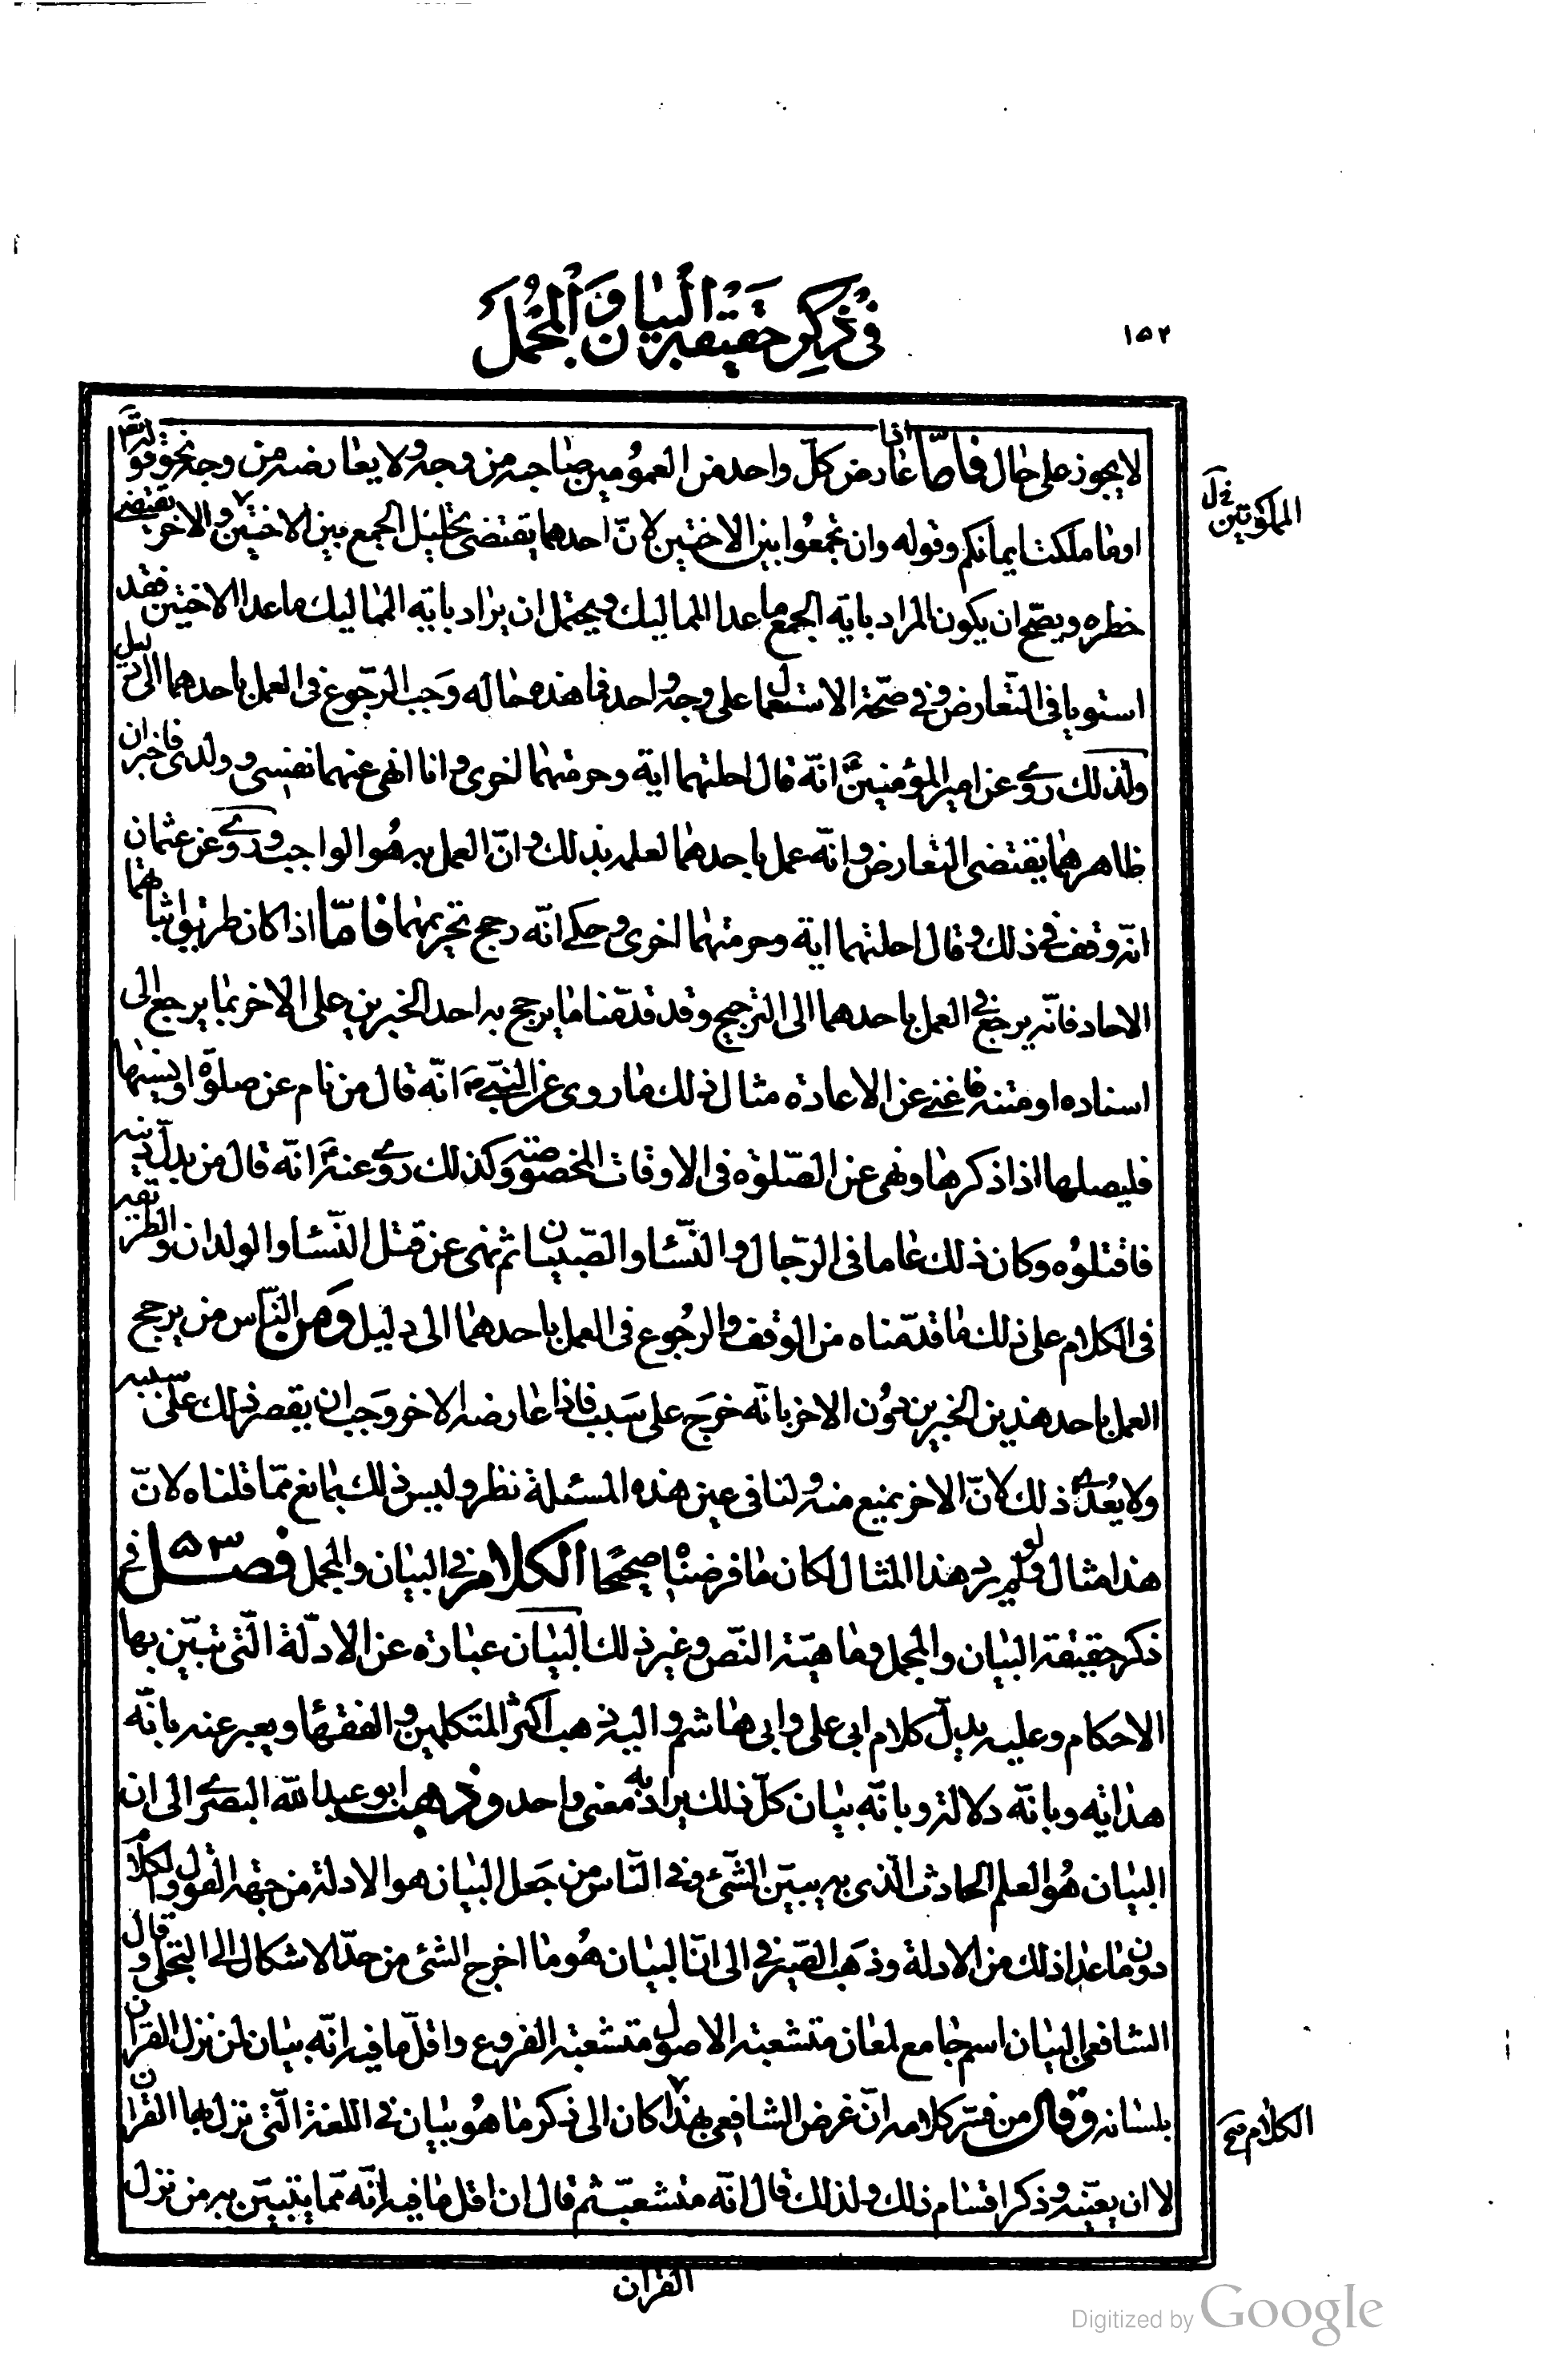 ١٥٢
فى ذكر حقيقة البيان و المجمل
لا يجوز على حال فامّا اذا عارض كلّ واحد من العمومين صاحبه من وجه ولا يعارضه من وجه نحو قوله تعم
او ما ملكت ايمانكم وقوله وان تجمعوا بين الاختين لانّ احدهما يقتضى تحليل الجمع بين الاختين والاخر يقتضى
المملوكتين خ ل
خطره ويصحّ ان يكون المراد باية الجمع ما عدا المماليك ويحتمل ان يراد باية المماليك ما عدا الاختين فقد
استويا فى التّعارض وفى صحّة الاستعمال على وجه واحد فما هذه حاله وجب الرّجوع فى العمل باحدهما الى دليل
ولذلك روى عن امير المؤمنين ع انّه قال احلتهما اية وحرمتهما اخرى وانا انهى عنهما نفسى وولدى فاخبر ان
ظاهرهما يقتضى التعارض وانّه عمل باحدهما لعلمه بذلك وانّ العمل به هو الواجب وروى عن عثمان
انّه وقف فى ذلك وقال احلتهما اية وحرمتهما اخرى وحكى انّه رجح تحريمهما فامّا اذا كان طريق اثباتهما
الاحاد فانّه يرجع فى العمل باحدهما الى الترجيح وقد قدّمنا ما يرجح به احد الخبرين على الاخر بما يرجع الى
اسناده او متنه فاغنى عن الاعادة مثال ذلك ما روى عن النبّى ص انّه قال من نام عن صلوة او نسيها
فليصلها اذا ذكرها ونهى عن الصّلوة فى الاوقات المخصوصة وكذلك روى عنه ع انّه قال من بدلّ دينه
فاقتلوه وكان ذلك عاما فى الرّجال والنّساء والصّبيان ثم نهى عن قتل النّساء والولدان والطريقة
فى الكلام على ذلك ما قدّمناه من الوقف والرجوع فى العمل باحدهما الى دليل ومن النّاس من يرجح
العمل باحد هذين الخبرين دون الاخر بانّه خرج على سبب فاذا عارضه الاخر وجب ان يقصر ذلك على سببه
ولا يعدّى ذلك لانّ الاخر يمنع منه ولنا فى عين هذه المسئلة نظر وليس ذلك بمانع ممّا قلناه لانّ
هذا مثال ولو لم يرد هذا المثال لكان ما فرضناه صحيحًا الكلام فى البيان والمجمل فصل ٥٣ فى
ذكر حقيقة البيان والمجمل وماهيّة النّص وغير ذلك البيان عبارة عن الادلّة الّتى تبيّن بها
الاحكام وعليه يدلّ كلام ابى على وابى هاشم واليه ذهب اكثر المتكلمين والفقهاء ويعبر عنه بانّه
هداية وبانّه دلالة وبانّه بيان كلّ ذلك يراد به معنى واحد وذهب ابو عبد الله البصرى الى ان
البيان هو العلم الحادث الّذى به يبيّن الشّىء وفى النّاس من جعل البيان هو الادلة من جهة القول والكلام
دون ما عدا ذلك من الادلة وذهب الصّيرفى الى انّ البيان هو ما اخرج الشئ من حدّ الاشكال الى التجلى وقال
الشافعى البيان اسم جامع لمعان متشعبة الاصول متشعبة الفروع واقلّ ما فيه انّه بيان لمن نزل القران
بلسانه وقال من فسّر كلامه انّ غرض الشافعى بهذا كان الى ذكر ما هو بيان فى اللغة الّتى نزل بها القران
الكلام صح
لا ان يعيّنه وذكر اقسام ذلك ولذلك قال انّه متشعبّ ثم قال ان اقل ما فيه انّه ممّا يتبيّن به من نزل
القران
Digitized by Google